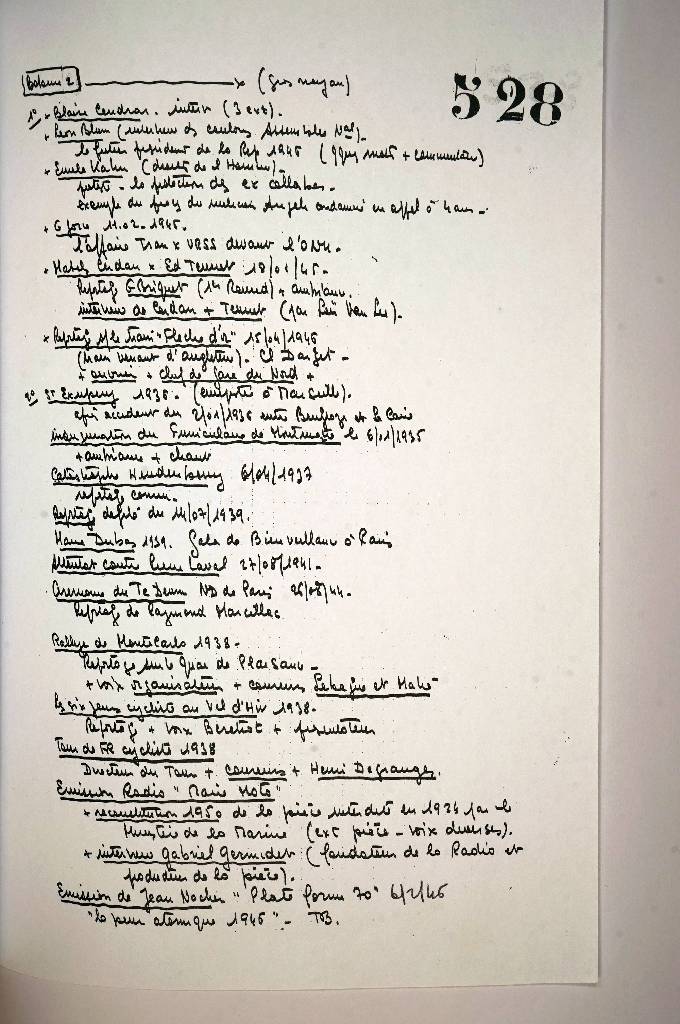 Bobine 2 (gros noyau)
528
1° * Blaise Cendrars. interv (3 ext).
* Leon Blum (interview ds couloirs Assemblée Nat) -
le futur président de la Rep 1946 (qques mots + commentaire)
* Emile Kahn (droits de l'Homme) -
proteste - la protection des ex collabos -
exemple du procès du milicien Angeli condamné en appel à 4 ans -
* G 11.02.1946.
l'affaire Iran x URSS devant l'ONU.
* Match Cerdan x Ed Tennet 18/01/45 -
Reportg G Briquet (1er Round) + ambiance.
interview de Cerdan + Tennet (par Loïs Van Lee).
* Reportg s/ le train "Fleche d'or" 15/04/1946
(train venant d'angleterre). Cl Darget -
+ + chef de Gare du Nord +
2° St Exupery 1936. (à Marseille).
après accident du 2/01/1936 entre Benghazi et le Caire
inauguration du Funiculaire de Montmartre le 6/01/1935
+ ambiance + chant
Catastrophe Hindenbourg 6/04/1937
reportg comm.
Reportg defilé du 14/07/1939.
Marie Dubas 1939. Gala de Bienveillance à Paris
Attentat contre Pierre Laval 27/08/1941 -
Ceremonie du Te Deum ND de Paris 26/08/44 -
Reportg de Raymond Marcillac
Rallye de Monte Carlo 1938 -
Reportage sur le Quai de Plaisance -
+ voix organisateur + coureurs Lebegue et Mahé
Les six jours cycliste au Vel d'Hiv 1938 -
Reportg + voix Berretrot + présentateur
Tour de FR cycliste 1938
Directeur du Tour + coureurs + Henri Desgranges.
Emission Radio "Marie Moto"
+ reconstitution 1950 de la pièce interdite en 1934 par le
Ministère de la Marine (ext pièce - voix diverses).
+ interview Gabriel Germinet (fondateur de la Radio et
producteur de la pièce).
Emission de Jean Nocher "Plate forme 70" 6/2/46
"la peur atomique 1946" - TB.